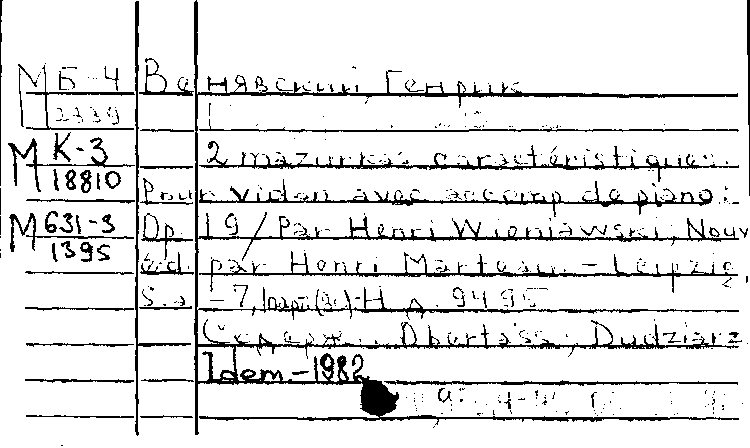 М Б-4 Венявский, Генрик
3339
М К-3 2 mazurkas caractéristiques.
18810 Pour violon avec accomp de piano:
М 631-3 Op. 19 / Par Henri Wieniawski; Nouv
1395
éd. par Henri Marteau. - Leipzig,
S.a. - 7, 1 парт. (3с.) - Н.д. 9495
Содерж.: Obertass; Dudziarz
Idem. - 1982